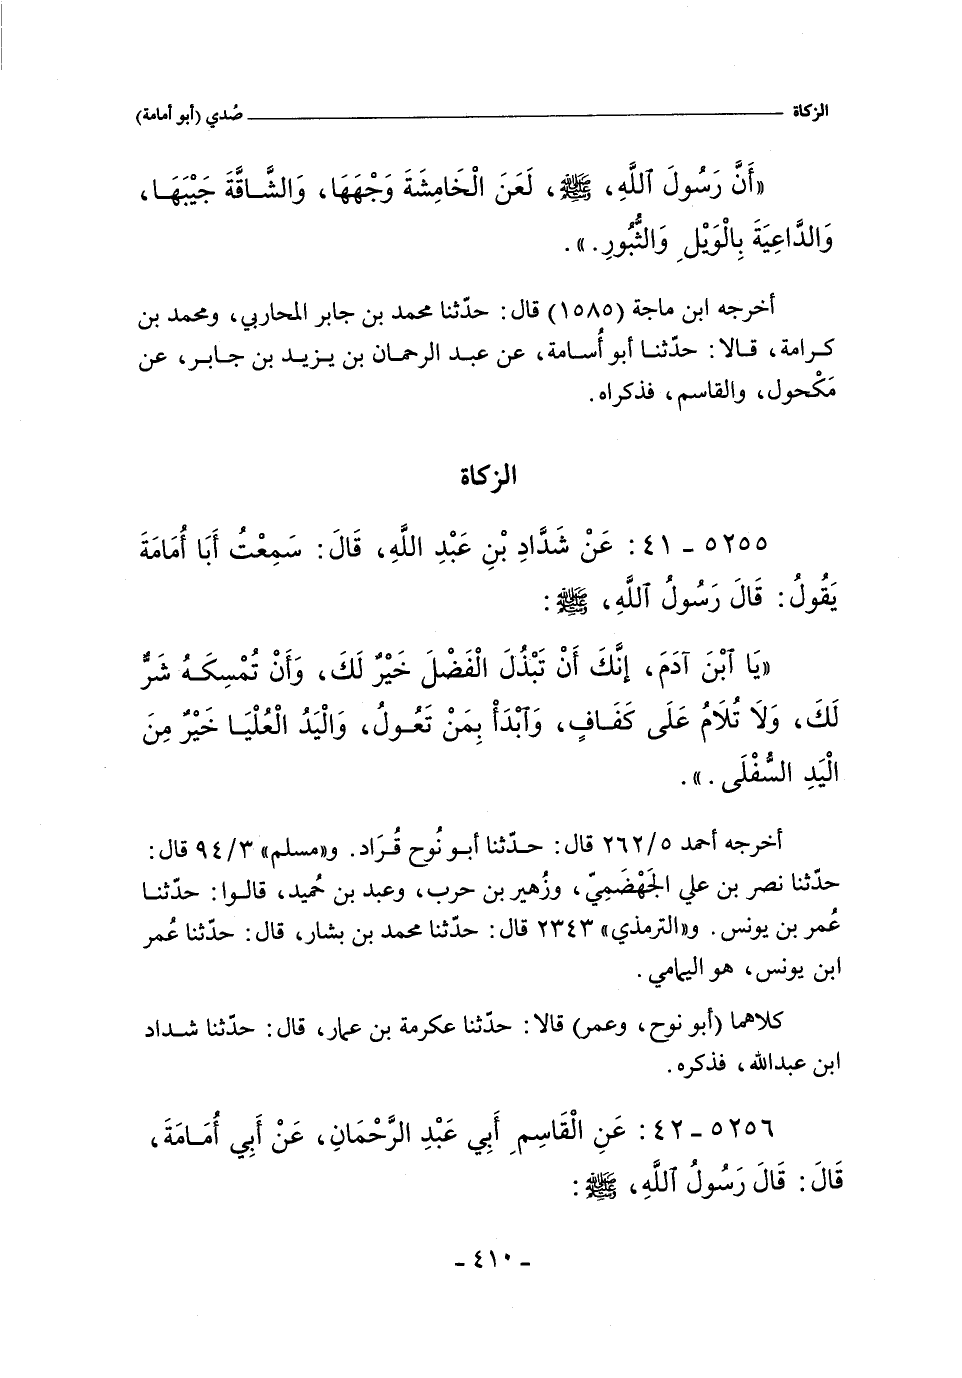 الزكاة ــــــــــــــــــــ صُدي (أبو أمامة)
«أَنَّ رَسُولَ ٱللَّهِ، ﷺ، لَعَنَ الْخَامِشَةَ وَجْهَهَا، وَالشَّاقَّةَ جَيْبَهَا،
وَالدَّاعِيَةَ بِالْوَيْلِ وَالثُّبُورِ.».
أخرجه ابن ماجة (١٥٨٥) قال: حدّثنا محمد بن جابر المحاربي، ومحمد بن
كرامة، قالا: حدّثنا أبو أُسامة، عن عبد الرحمان بن يزيد بن جابر، عن
مَكْحول، والقاسم، فذكراه.
الزكاة
٥٢٥٥ ـ ٤١: عَنْ شَدَّادِ بْنِ عَبْدِ اللَّهِ، قَالَ: سَمِعْتُ أَبَا أُمَامَةَ
يَقُولُ: قَالَ رَسُولُ ٱللَّهِ، ﷺ:
«يَا ٱبْنَ آدَمَ، إِنَّكَ أَنْ تَبْذُلَ الْفَضْلَ خَيْرٌ لَكَ، وَأَنْ تُمْسِكَهُ شَرٌّ
لَكَ، وَلَا تُلَامُ عَلَى كَفَافٍ، وَٱبْدَأْ بِمَنْ تَعُولُ، وَالْيَدُ الْعُلْيَا خَيْرٌ مِنَ
الْيَدِ السُّفْلَى.».
أخرجه أحمد ٢٦٢/٥ قال: حدّثنا أبو نُوح قُرَاد. و«مسلم» ٩٤/٣ قال:
حدّثنا نصر بن علي الجَهْضَمِيّ، وزُهير بن حرب، وعبد بن حُميد، قالوا: حدّثنا
عُمر بن يونس. و«الترمذي» ٢٣٤٣ قال: حدّثنا محمد بن بشار، قال: حدّثنا عُمر
ابن يونس، هو اليمامي.
كلاهما (أبو نوح، وعمر) قالا: حدّثنا عكرمة بن عمار، قال: حدّثنا شداد
ابن عبدالله، فذكره.
٥٢٥٦ ـ ٤٢: عَنِ الْقَاسِمِ أَبِي عَبْدِ الرَّحْمَانِ، عَنْ أَبِي أُمَامَةَ،
قَالَ: قَالَ رَسُولُ ٱللَّهِ، ﷺ:
ـ ٤١٠ ـ